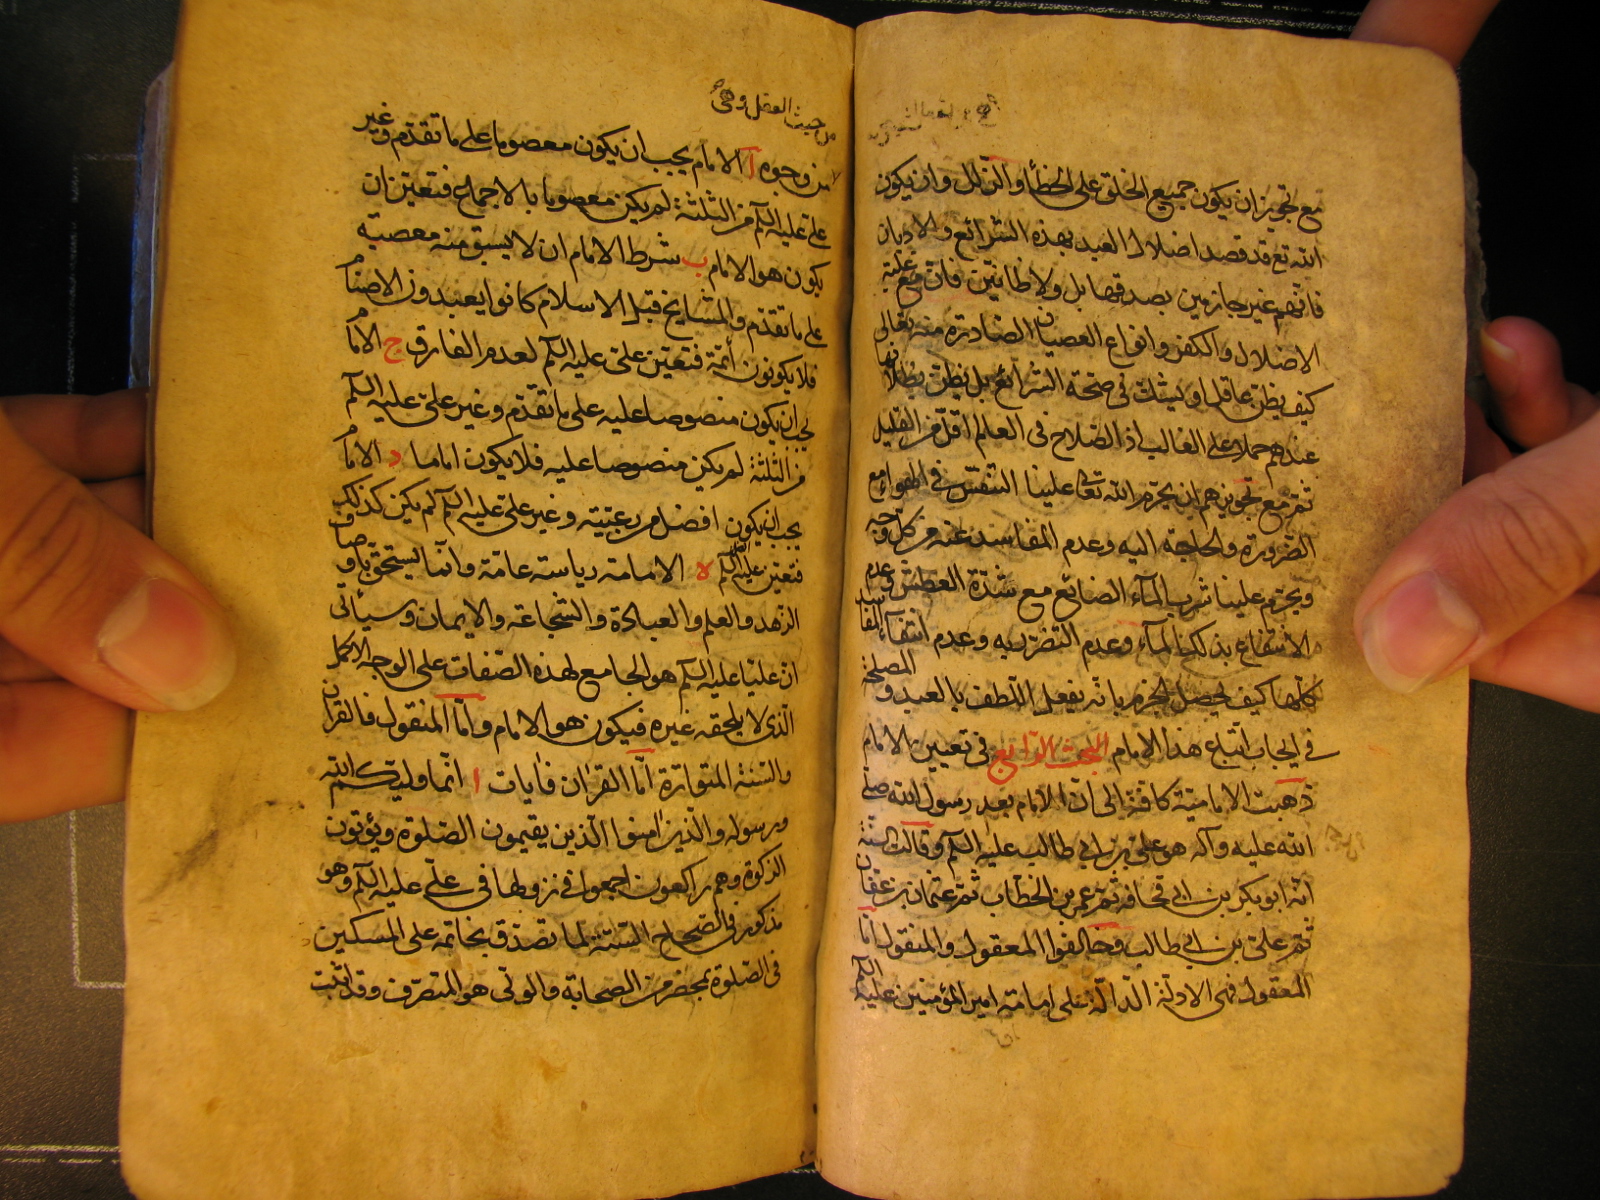 مع تجويز ان يكون جميع الخلق على الخطأ والزلل وان يكون
الله تع قد قصد اضلال العبد بهذه الشرائع والاديان
فانهم غير جازمين بصدقها بل ولا ظانين فان مع غلبة
الاضلال والكفر وانواع العصيان الصادرة منه تعالى
كيف يظن عاقل او يشك في صحة الشرائع بل يظن بطلانها
عندهم حملا على الغالب اذ الصلاح في العالم اقل من القليل
ثم مع تجويزهم ان يحرم الله تعالى علينا التنفس في الهواء مع
الضرورة والحاجة اليه وعدم المفاسد عنه من كل وجه
ويحرم علينا شرب الماء السائغ مع شدة العطش وعدم
الانتفاع بذلك الماء وعدم التضرر به وعدم انتفاء المفاسد
كلها كيف يحصل الجزم بانه يفعل اللطف بالعبد والمصلحة
في ايجاب اتباع هذا الامام البحث الرابع في تعيين الامام
ذهبت الامامية كافة الى ان الامام بعد رسول الله صلى
الله عليه وآله هو علي بن ابي طالب عليه السلم وقالت السنة
انه ابو بكر بن ابي قحافة ثم عمر بن الخطاب ثم عثمان بن عفان
ثم علي بن ابي طالب وخالفوا المعقول والمنقول اما
المعقول فهي الادلة الدالة على امامة امير المؤمنين عليه السلم
من حيث العقل وهي
من وجوه ا الامام يجب ان يكون معصوما على ما تقدم وغير
علي عليه السلم من الثلثة لم يكن معصوما بالاجماع فتعين ان
يكون هو الامام ب شرط الامام ان لا يسبق منه معصية
على ما تقدم والمشايخ قبل الاسلام كانوا يعبدون الاصنام
فلا يكونون أئمة فتعين علي عليه السلم لعدم الفارق ج الامام
يجب ان يكون منصوصا عليه على ما تقدم وغير علي عليه السلم
من الثلثة لم يكن منصوصا عليه فلا يكون اماما د الامام
يجب ان يكون افضل من رعيته وغير علي عليه السلم لم يكن كذلك
فتعين عليه السلم ه الامامة رياسة عامة وانما يستحق باوصاف
الزهد والعلم والعبادة والشجاعة والايمان وسيأتي
ان عليا عليه السلم هو الجامع لهذه الصفات على الوجه الاكمل
الذي لا يلحقه غيره فيكون هو الامام واما المنقول فالقران
والسنة المتواترة اما القران فايات ا انما وليكم الله
ورسوله والذين امنوا الذين يقيمون الصلوة ويؤتون
الزكوة وهم راكعون اجمعوا في نزولها في علي عليه السلم وهو
مذكور في الصحاح الستة لما تصدق بخاتمه على المسكين
في الصلوة بمحضر من الصحابة والولي هو المتصرف وقد اثبت